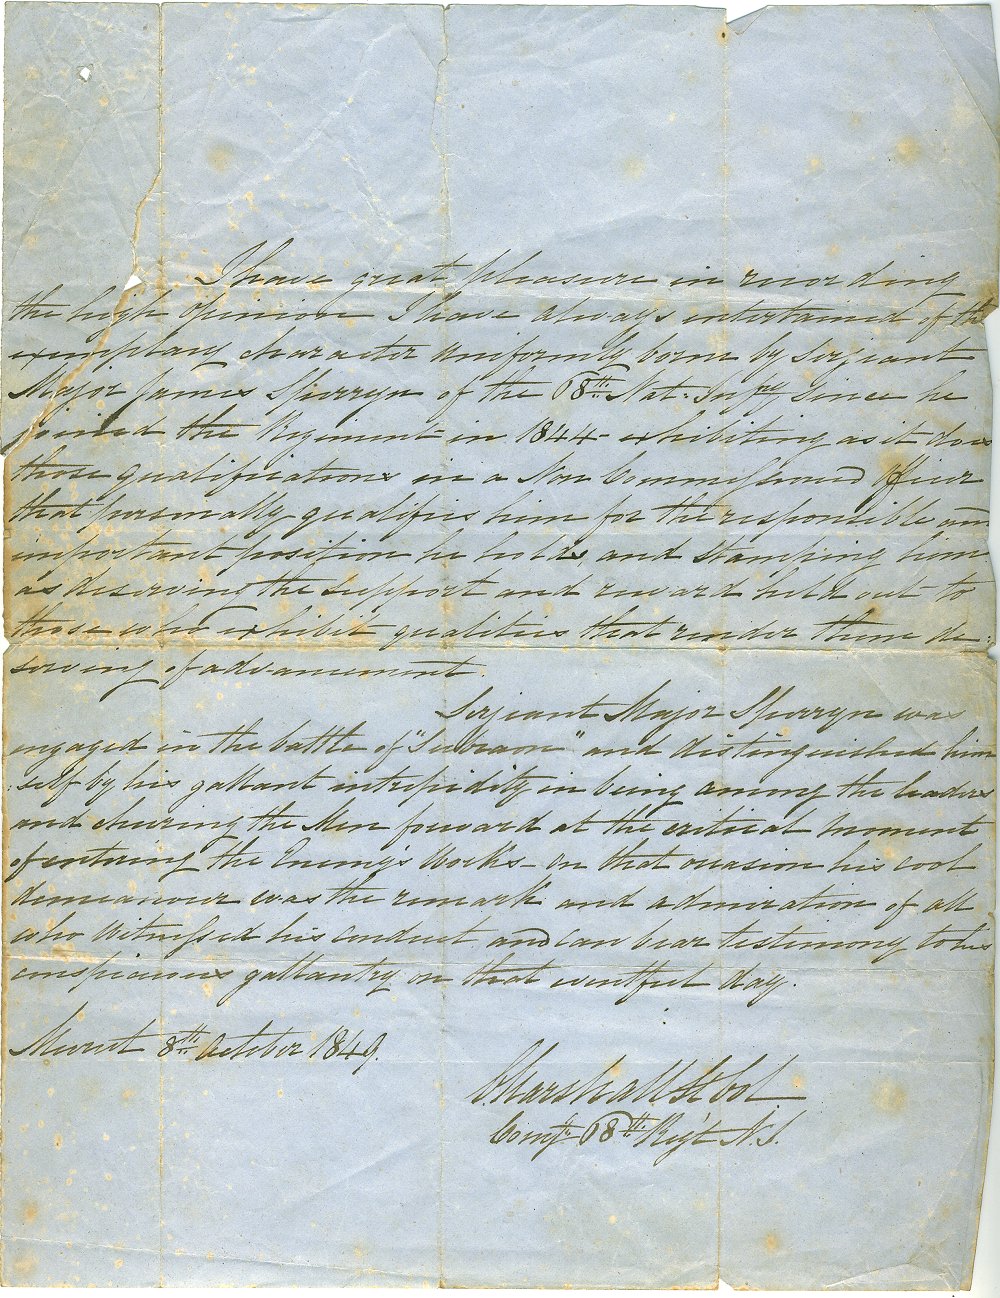 I have great pleasure in recording
the high opinion I have always entertained of the
exemplary character uniformly borne by Serjeant
Major James Sperryn of the 68th Nat: Infy since he
joined the Regiment in 1844 exhibiting as it does
those qualifications in a Non Commissioned Officer
that personally qualifies him for the responsible and
important position he holds, and stamping him
as deserving the support and reward held out to
those who exhibit qualities that render them de:
serving of advancement.
Serjeant Major Sperryn was
engaged in the battle of "Subraon" and distinguished him
:self by his gallant intrepidity in being among the leaders
and cheering the Men forward at the critical moment
of entering the Enemy's Works - on that occasion his cool
demeanour was the remark and admiration of all
who witnessed his conduct and can bear testimony to his
conspicuous gallantry on that eventful day.
Meerut 8th October 1849.
Marshall Lt Col
Comg 68th Regt N.I.